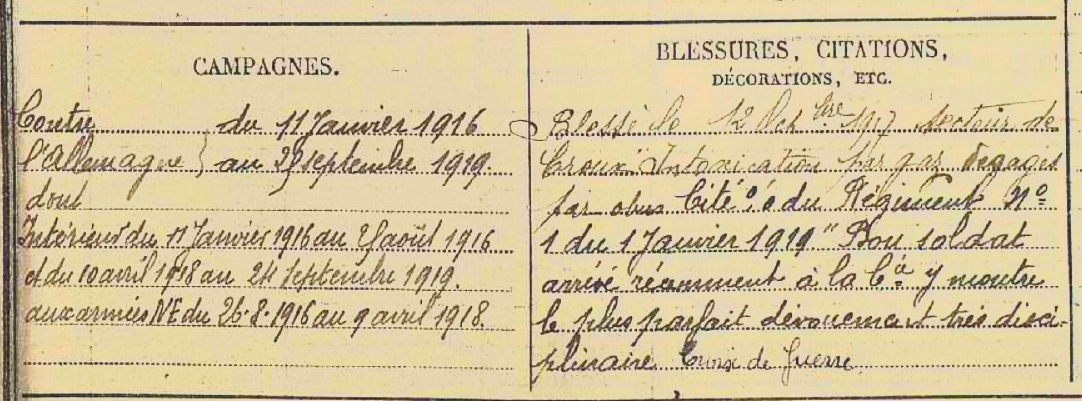 CAMPAGNES.
Contre du 11 Janvier 1916
l'Allemagne } au septembre 1919.
dont
Intérieur du 11 Janvier 1916 au août 1916
et du 10 avril 1918 au 24 septembre 1919.
aux armées NE du 26.8.1916 au 9 avril 1918.
BLESSURES, CITATIONS,
DÉCORATIONS, ETC.
Blessé le 12 Octbre 1917 secteur de
"Intoxication par gaz dégagés
par obus Cité o/ du Régiment No
1 du 1 Janvier 1919 "Bon soldat
arrivé récemment à la Cie y montre
le plus parfait dévouement très disci-
plinaire Croix de Guerre